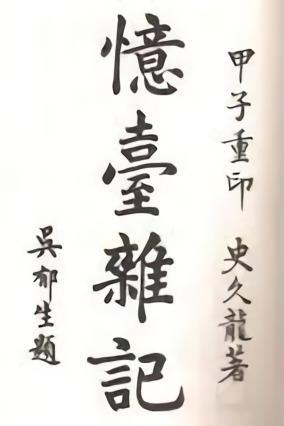 甲子重印 史久龍著
憶臺雜記
吳郁生題